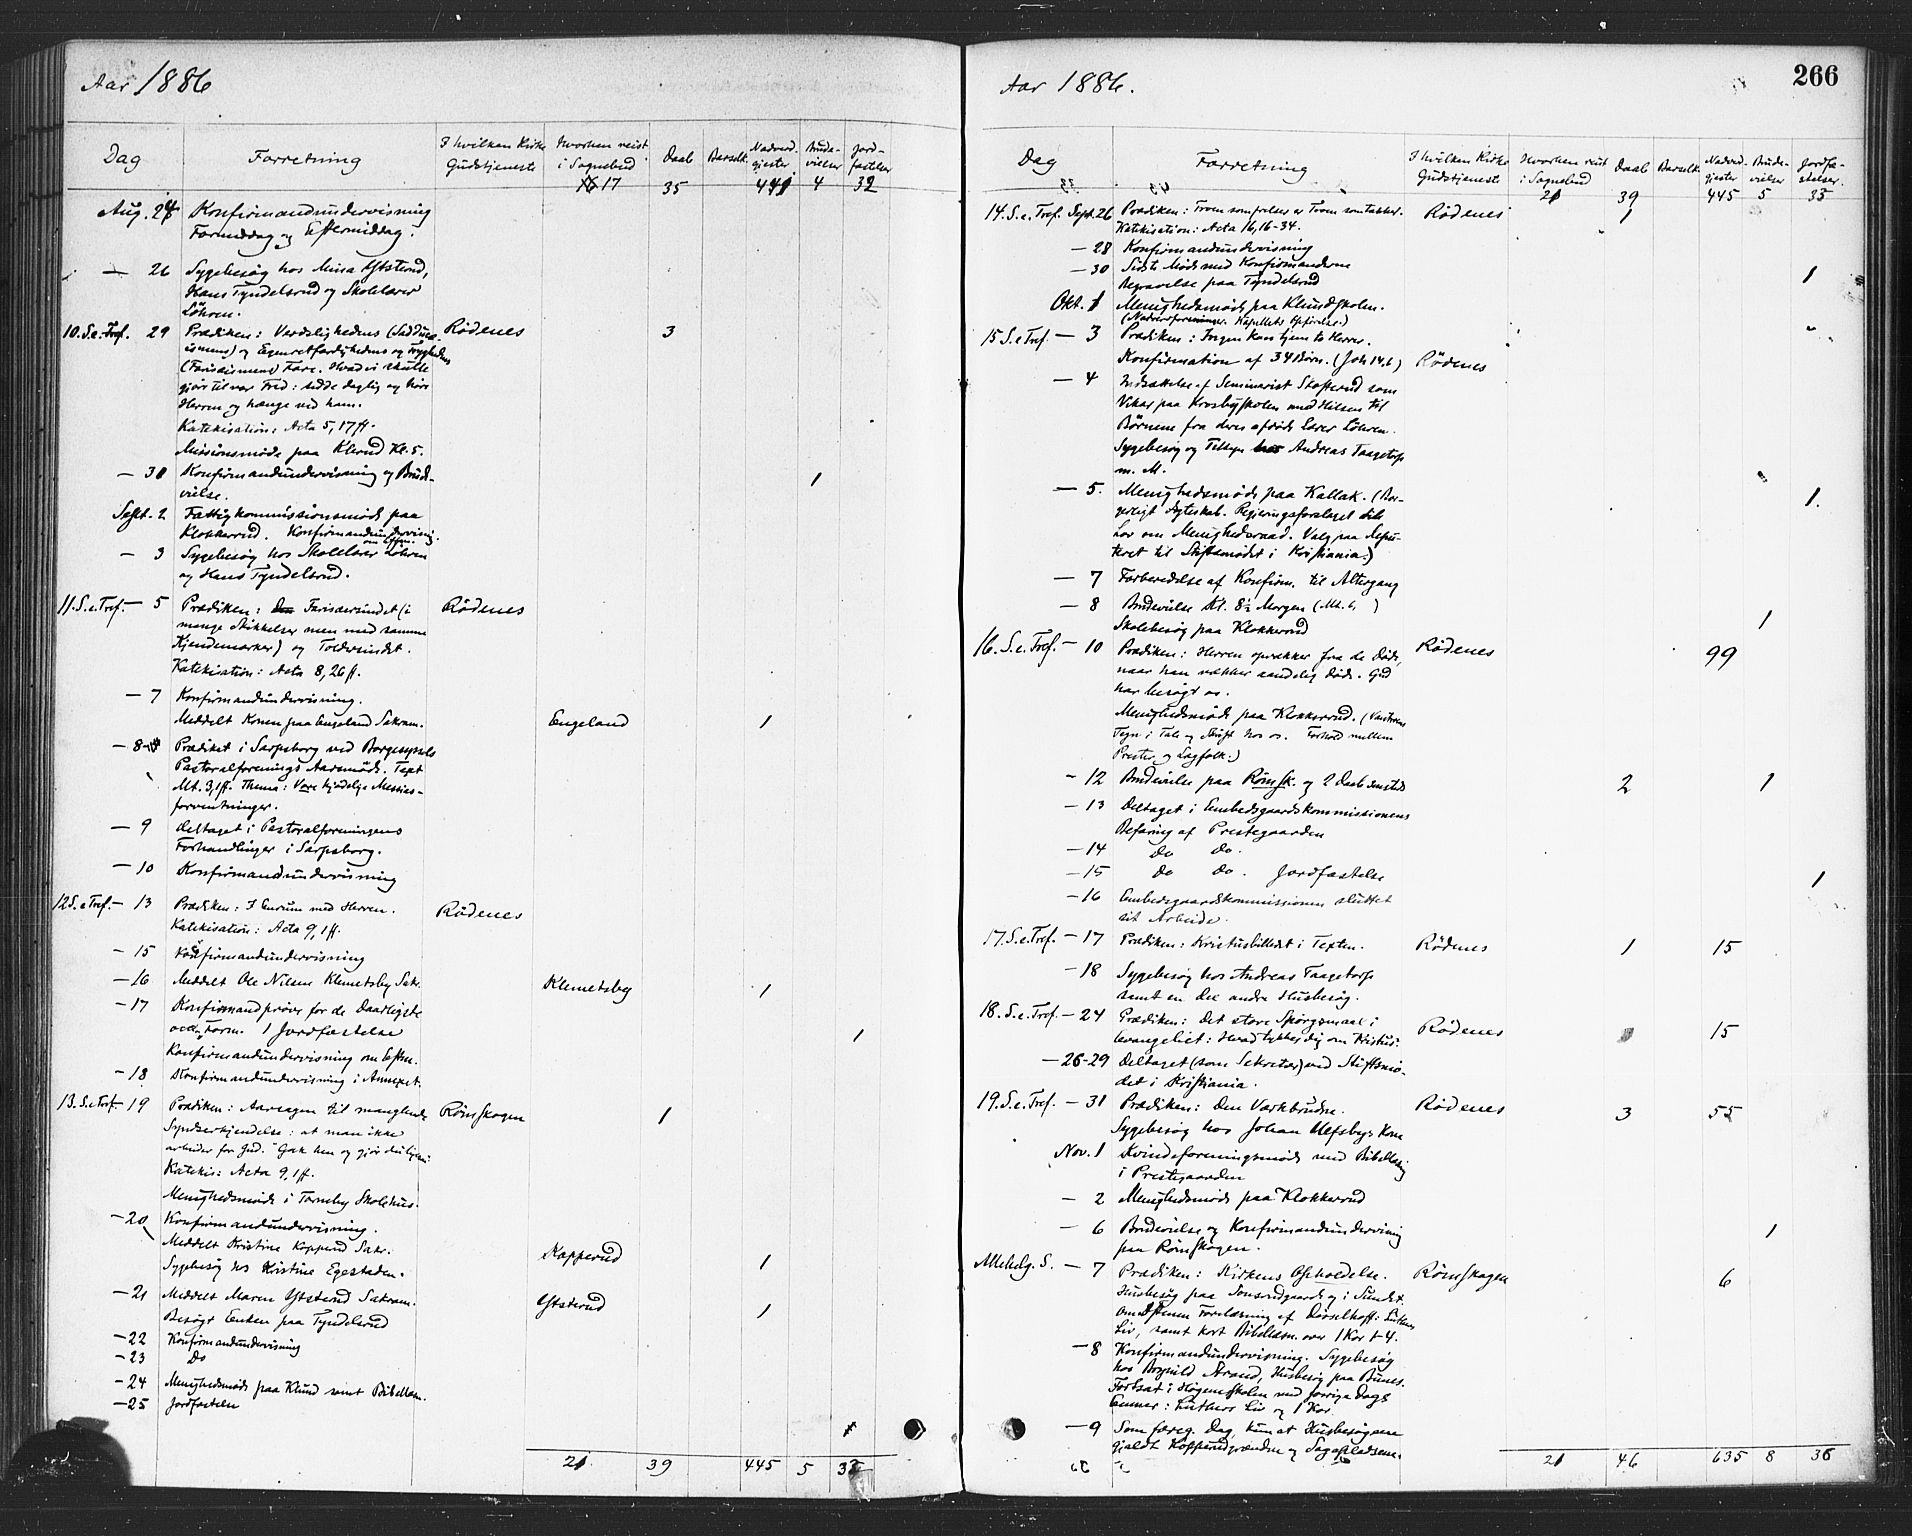 Aar 1886
Dag
Forretning
I hvilken Kirke Gudstjeneste
Hvorhen reist i Sognebud
Daab
Barselk.
Nadverd. gjester
Brude-vielser
Jord-fæstelser
17 35 441 4 32
Aug. 24 Konfirmandundervisning
Formiddag og Eftermiddag.
— 26 Sygebesøg hos Mina Ytsterud,
Hans Tyndelsrud og Skolelærer
Löhren.
10. S. e. Tref. 29 Prædiken: Verdslighedens (Sadducæ- Rødenes 3
ismens) og Egenretfærdighedens og Tryghedens
(Farisæismens) Fare. Hvad vi skulle
gjøre til vor Fred: sidde daglig og høre
Herren og hænge ved ham.
Katekisation: Acta 5, 17 ff.
Missionsmøde paa Klund Kl. 5.
— 30 Konfirmandundervisning og Brude- 1
vielse.
Sept. 2 Fattigkommissionsmøde paa
Klokkerud. Konfirmandundervisnig.
om Eftm.
— 3 Sygebesøg hos Skolelærer Löhren
og Hans Tyndelsrud.
11. S. e. Tref. — 5 Prædiken: Farisæersindet (i Rødenes
mange Skikkelser men med samme
Kjendemærker) og Toldersindet.
Katekisation: Acta 8, 26 ff.
— 7 Konfirmandundervisning.
Meddelt Konen paa Engeland Sakram. Engeland 1
— 8 Prædiket i Sarpsborg ved Borgesyssels
Pastoralforenings Aarsmøde. Text
Mt. 3, 1 ff. Thema: Vore kjødelige Messias-
forventninger.
— 9 Deltaget i Pastoralforeningens
Forhandlinger i Sarpsborg.
— 10 Konfirmandundervisning
12 S. e Tref. — 13 Prædiken: I Enrum med Herren. Rødenes
Katekisation: Acta 9, 1 ff.
— 15 Konfirmandundervisning
— 16 Meddelt Ole Nilsen Klemetsby Sakr. Klemetsby 1
— 17 Konfirmandprøve for de Daarligste
Form. 1 Jordfæstelse 1
Konfirmandundervisning om Eftm.
— 18 Konfirmandundervisning i Annexet.
13. S. e Tref — 19 Prædiken: Aarsagen til manglende Rømskogen 1
Syndserkjendelse: at man ikke
arbeider for Gud. "Gak hen og gjør du ligesaa"
Katekis: Acta 9, 1 ff.
Menighedsmøde i Torneby Skolehus.
— 20 Konfirmandundervisning.
Meddelt Kristine Kopperud Sakr. Kopperud 1
Sygebesøg hos Kristine Egestaden.
— 21 Meddelt Maren Ytsterud Sakram. Ytsterud 1
Besøgt Enken paa Tyndelsrud
— 22 Konfirmandundervisning
— 23 Do
— 24 Menighedsmøde paa Klund samt Bibellæsn.
— 25 Jordfæstelse
21 39 445 5 35
Aar 1886.
266
Dag
Forretning
I hvilken Kirke Gudstjeneste
Hvorhen reist i Sognebud
Daab
Barselk.
Nadverd. gjester
Brude-vielser
Jordfæ-stelser.
21 39 445 5 35
14. S. e. Tref. Sept. 26 Prædiken: Troen som frelser er Troen som takker. Rødenes 1
Katekisation: Acta 16, 16-34.
— 28 Konfirmandundervisning
— 30 Sidste Møde med Konfirmanderne
Begravelse paa Tyndelsrud 1
Okt. 1 Menighedsmøde paa Klundskolen.
(Nadverforeninger. Kapellets Opførelse.)
15 S. e Tref. — 3 Prædiken: Ingen kan tjene to Herrer.
Konfirmation af 34 Børn. (Joh 14, 6) Rødenes
— 4 Indsættelse af Seminarist Skofterud som
Vikar paa Krosbyskolen med Hilsen til
Børnene fra deres afdøde Lærer Löhren.
Sygebesøg og Tilsyn Andreas Taagetorp
m. M.
— 5. Menighedsmøde paa Kallak. (Bor- 1.
gerligt Ægteskab. Regjeringsforslaget til
Lov om Menighedsraad. Valg paa Depu-
teret til Stiftsmødet i Kristiania.)
— 7 Forberedelse af Konfirm. til Altergang
— 8 Brudevielse Kl. 8½ Morgen (Mt. 6, ) 1
Skolebesøg paa Klokkerud
16. S. e. Tref. — 10 Prædiken: Herren opvækker fra de Døde, Rødenes 99
naar han vækker aandelig døde. Gud
har besøgt os.
Menighedsmøde paa Klokkerud. (Vantroens
Tegn i Tale og Skrift hos os. Forhold mellem
Prester og Lægfolk.)
— 12 Brudevielse paa Rømsk. og 2 Daab smsteds 2 1
— 13 Deltaget i Embedsgaardskommissionens
Befaring af Prestegaarden
— 14 Do Do.
— 15 Do Do. Jordfæstelse 1
— 16 Embedsgaardskommissionen sluttet
sit Arbeide.
17. S. e. Tref. — 17 Prædiken: Kristusbilledet i Texten. Rødenes 1 15
— 18 Sygebesøg hos Andreas Taagetorp
samt en Del andre Husbesøg.
18. S. e. Tref. — 24 Prædiken: Det store Spörgsmaal i Rødenes 15
Evangeliet: Hvad tykkes dig om Kristus:
— 26-29 Deltaget (som Sekretær) ved Stiftsmø-
det i Kristiania.
19. S. e. Tref. — 31 Prædiken: Den Værkbrudne. Rødenes 3 55
Sygebesøg hos Johan Ulfsbys Kone
Nov. 1 Kvindeforeningsmøde med Bibellæsnig
i Prestegaarden
— 2 Menighedsmøde paa Klokkerud
— 6 Brudevielse og Konfirmandundervisnig 1
paa Rømskogen.
Allehelg. S. — 7 Prædiken: Kirkens Opholdelse. Rømskogen 6
Husbesøg paa Tonsrudgaarde og i Sundet.
om Aftenen Forelæsning af Disselhoff: Luthers
Liv, samt kort Bibellæsn. over 1 Kor 1-4.
— 8 Konfirmandundervisning. Sygebesøg
hos Borghild Strand, Husbesøg paa Bunes.
Fortsat i Högenskolen med forrige Dags
Emner: Luthers Liv og 1 Kor.
— 9 Som foreg. Dag, kun at Husbesøgene
gjaldt Kopperudgrænden og Sagspladsene.
21 46 635 8 36